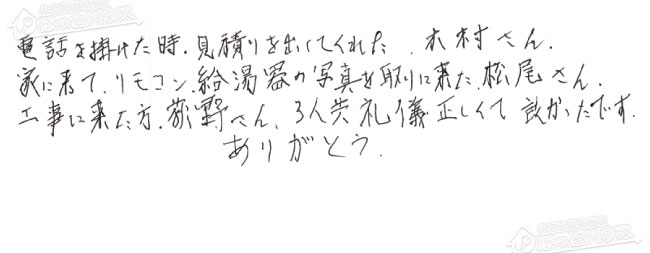 電話を掛けた時、見積りを出してくれた、木村さん、
家に来て、リモコン、給湯器の写真を取りに来た、松尾さん、
工事に来た方、荻野さん、3人共礼儀正しくて良かったです。
ありがとう。